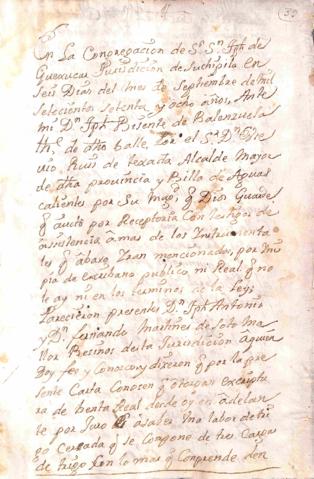 39
En La Congregacion de Sr. Sn. Jph de
Guexucar Jurisdicion de Suchipila en
Seis Dias del mes de Septiembre de mil
Setecientos Setenta y ocho años, Ante
mi Dn. Jph Bisente de Balenzuela
The. de dho balle, Por el Sr. Dn.
Ruis de texada Alcalde Mayor
de dha provincia y Billa de Aguas
calientes por Su Magd. q Dios Guarde
q auto por Receptoria Con testigos de
assistencia a mas de los Instrumenta
les q abaxo Iran mencionados, por
de escribano publico ni Real q no
le ay ni en los terminos de la ley;
Parecieron presentes Dn. Jph Antonio
y Dn. fernando Martines de Soto Ma
llor Besinos de esta Jurisdicion Aquien
Doy fee y Conosco y dixeron q por la pre
sente Carta Conosen q otorgan escriptu
ra de benta Real desde oy en adelan
te por Juro asaber Una labor de tri
go Cercada q se Compone de tres Cargas
de trigo Con lo mas q Comprende den